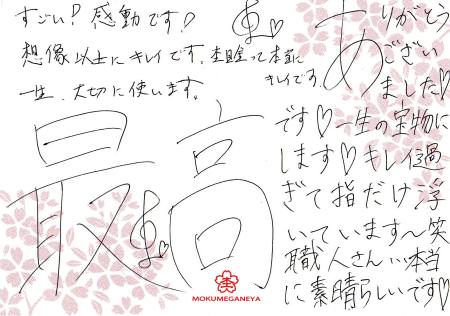 すごい! 感動です!
想像以上にキレイです。杢目って本当に
キレイです。
一生、大切に使います。
最高
ありがとう
ござい
ました♡
です♡一生の宝物に
します♡キレイ過
ぎて指だけ浮
いています〜笑
職人さん…本当
に素晴らしいです♡
MOKUMEGANEYA